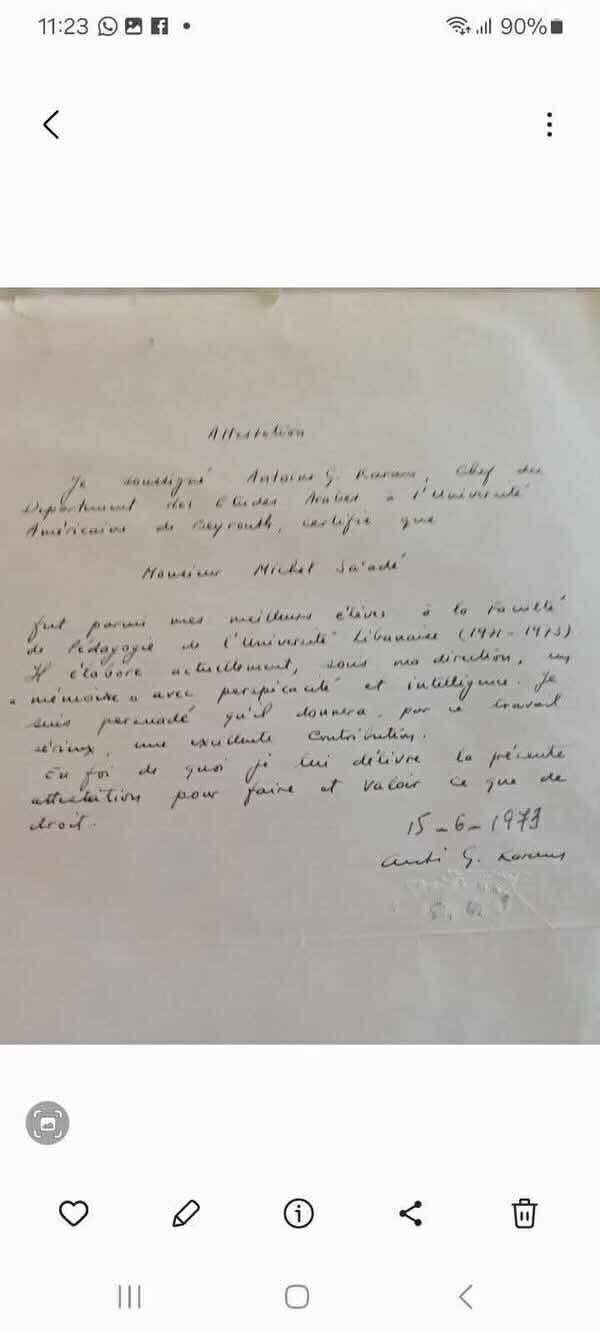 11:23
90%
Attestation
Je soussigné Antoine G. Karam, Chef du
Département des Etudes Arabes à l'Université
Américaine de Beyrouth, certifie que
Monsieur Michel Sa'adé
fut parmi mes meilleurs élèves à la Faculté
de Pédagogie de l'Université Libanaise (1971-1973)
Il élabore actuellement, sous ma direction, un
"mémoire" avec perspicacité et intelligence. Je
suis persuadé qu'il donnera, par ce travail
sérieux, une excellente contribution.
En foi de quoi je lui délivre la présente
attestation pour faire et valoir ce que de
droit.
15-6-1973
G. Karam